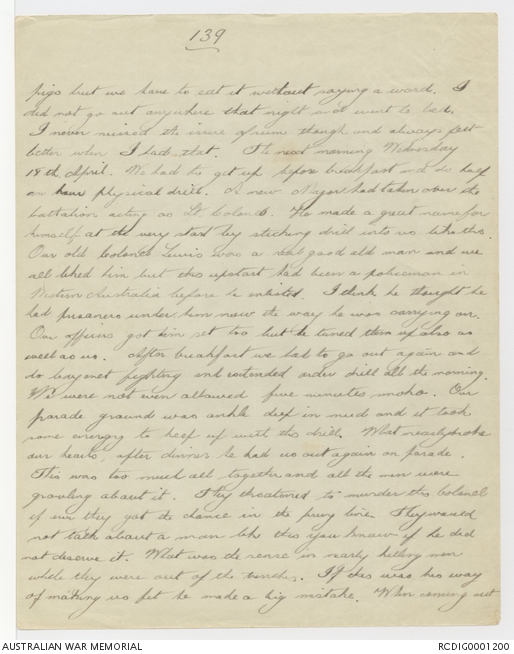 139
pigs but we have to eat it without saying a word. I
did not go out anywhere that night but went to bed.
I never missed the issue of rum though and always felt
better when I had that. The next morning Wednesday
18th April. We had to get up before breakfast and do half
an hour physical drill. A new Major had taken over the
battalion acting as Lt. Colonel. He made a great name for
himself at the very start by sticking drill into us like this.
Our old Colonel Lewis was a real good old man and we
all liked him but this upstart had been a policeman in
Western Australia before he enlisted. I think he thought he
had prisoners under him now the way he was carrying on.
Our officers got him set too but he tuned them up also as
well as us. After breakfast we had to go out again and
do bayonet fighting and extended order drill all the morning.
We were not even allowed five minutes smoko. Our
parade ground was ankle deep in mud and it took
some energy to keep up with the drill. What nearly broke
our hearts, after dinner he had us out again on parade.
This was too much all together and all the men were
growling about it. They threatened to murder this Colonel
if ever they got the chance in the firing line. They would
not talk about a man like this you know if he did
not deserve it. What was the sense in nearly killing men
while they were out of the trenches. If this was his way
of making us fit he made a big mistake. When coming out
AUSTRALIAN WAR MEMORIAL
RCDIG0001200